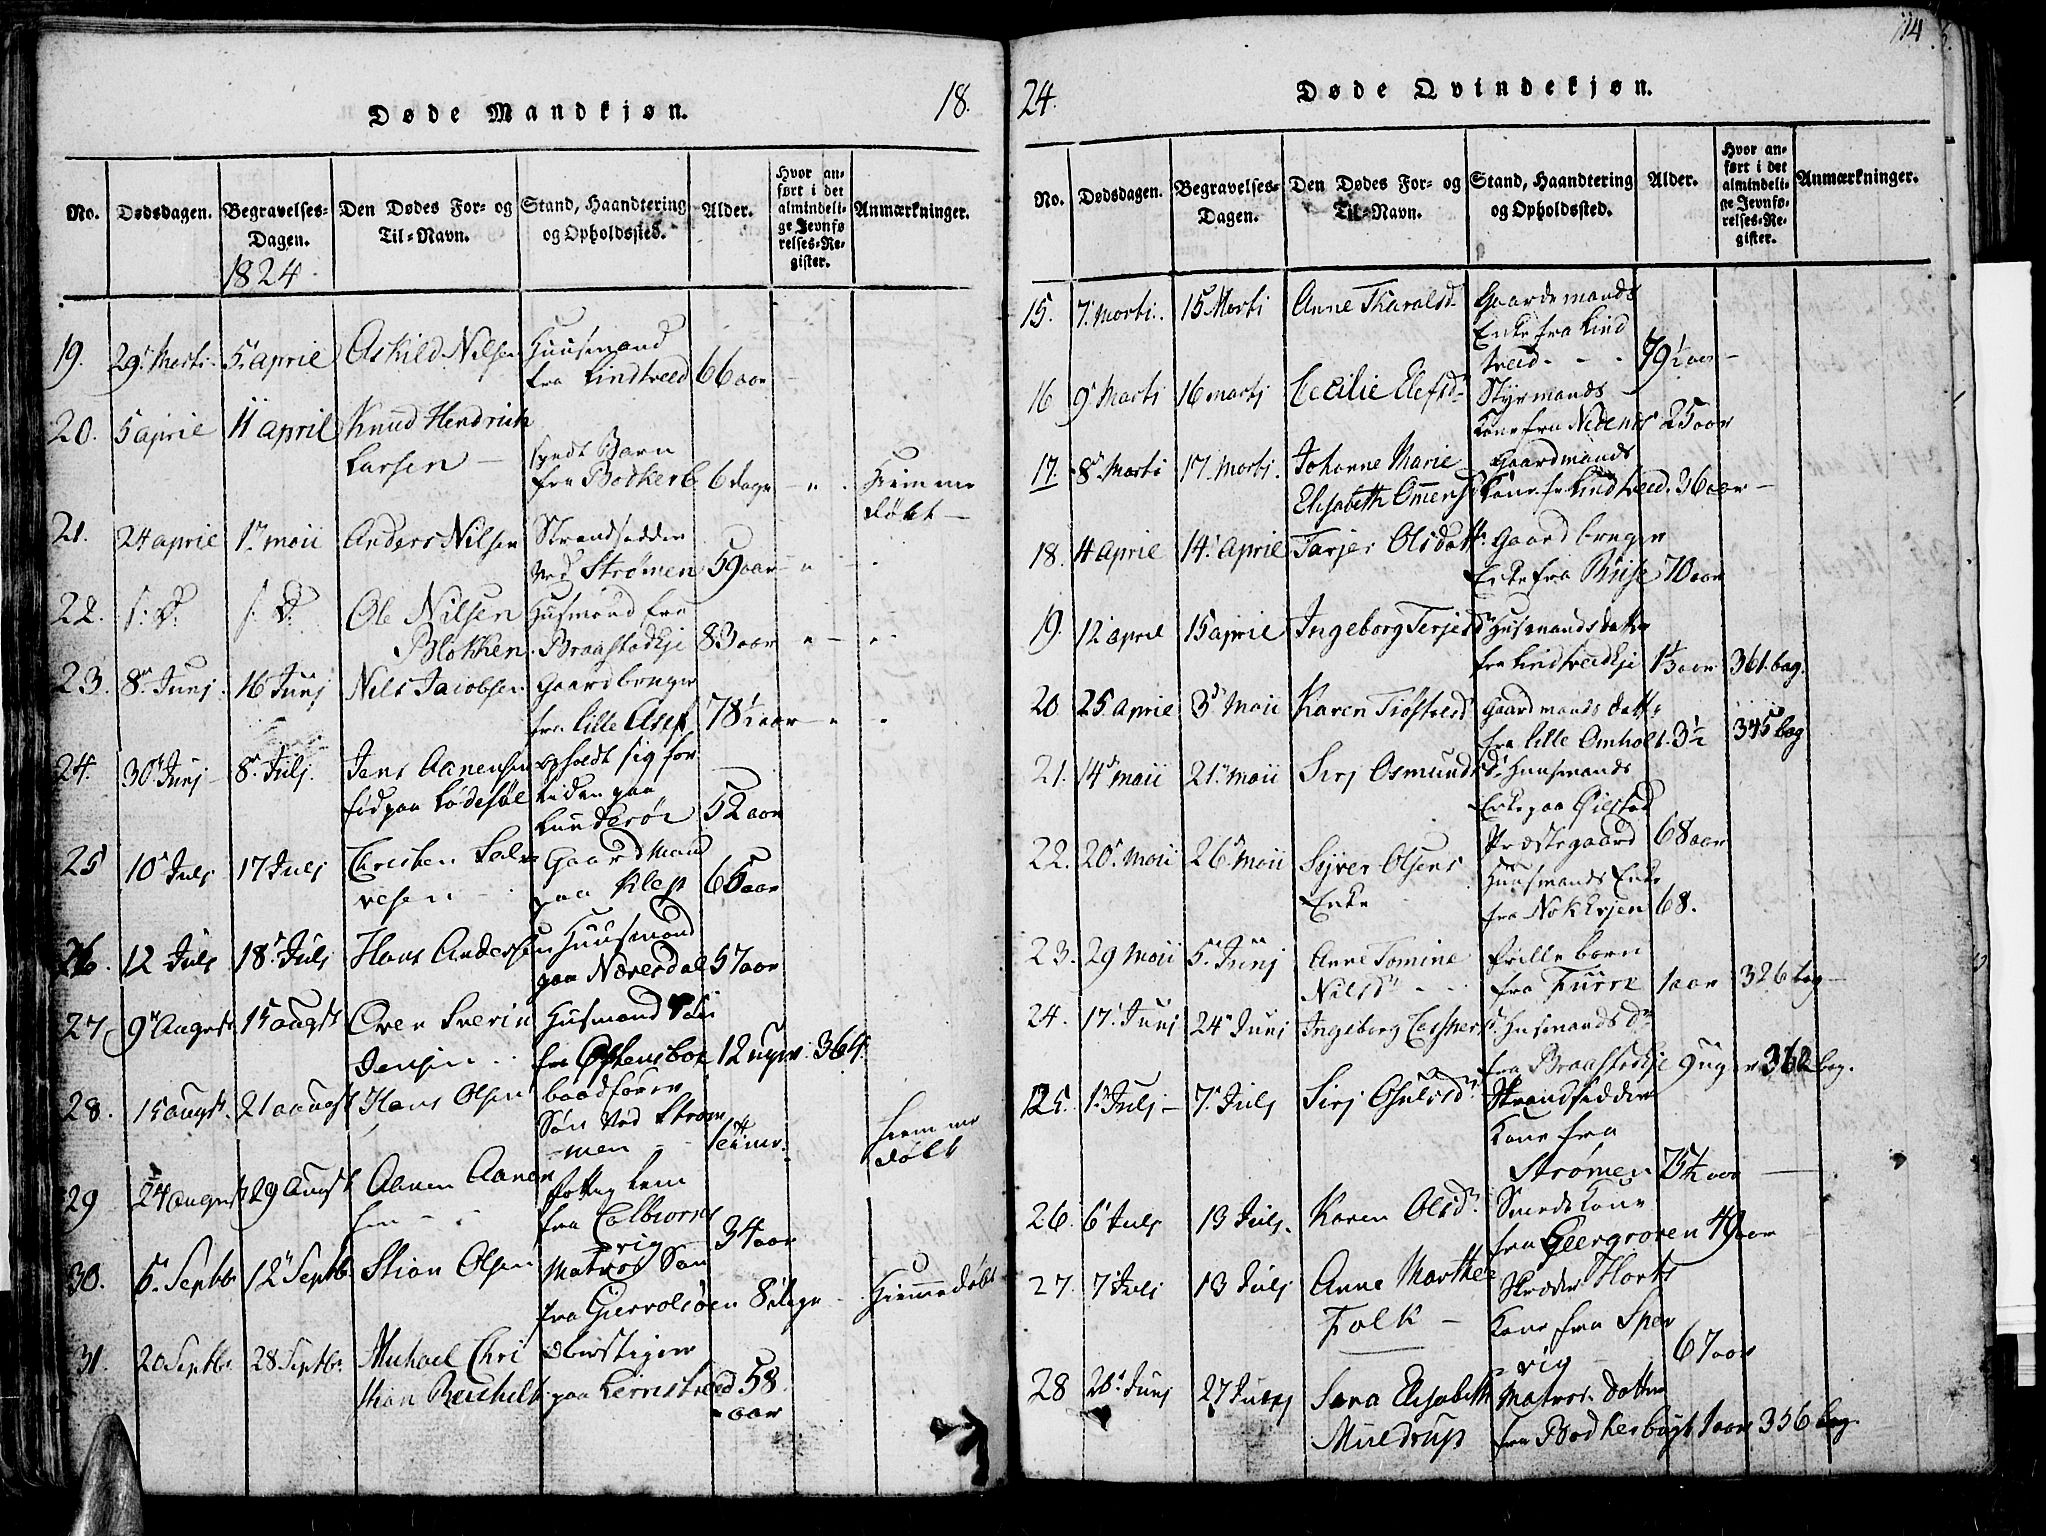 Døde Mandkjøn.
18.
No.
Dødsdagen.
Begravelses-
Dagen.
Den Dødes For- og
Til-Navn.
Stand, Haandtering
og Opholdssted.
Alder.
Hvor an-
ført i det
almindeli-
ge Jevnfø
relses-Re-
gister.
Anmærkninger.
1824
19. 29 Marti 5 aprie Askild Nilsen Huusmand
fra Lindtveed 66 aar
20. 5 aprie 11 aprie Knud Hendrich
Larsen spedt Barn
fra Bodkerb 6 dage Hiemme
døbt
21. 24 aprie 1 maii Anders Nilsen Strandsidder
ved Strømen 59 aar
22. s. D. s. D. Ole Nilsen Husmand fra
Blokken Braastadkji 83 aar
23. 8 Junj 16 Junj Nils Jacobsen Gaardbruger
fra Lille Asef 78½ aar
24. 30 Junj 8 Julj Jens Aanensen opholdt sig for
fød paa Lødesøl tiden paa
Lunderøe 52 aar
25 10 Julj 17 Julj Christen Salve
vesen Gaardmand
paa Klep 65 aar
26. 12 Julj 18 Julj Hans Andersen Huusmand
paa Næresdal 57 aar
27 9 August 15 augst Over Severin Husmand
Jensen fra Østensboe 12 uger 364.
28. 15 augst. 21 august Hans Olsen baadfører
Søn ved Strøm
men Hiemme
døbt
29 24 august 29 Augst Aanen Aanen
sen fattig Lem
fra Colbiorns
vig 34 aar
30. 5 Septbr 12 Septbr Stian Olsen Matros Søn
fra Gierrolsøen 8 dage Hiemmedøbt
31. 20 Septbr. 28 Septbr. Michael Chri
stian Obirstiger
paa 58
aar
24.
Døde Qvindekjøn.
114
No.
Dødsdagen.
Begravelses-
Dagen.
Den Dødes For- og
Til-Navn.
Stand, Haandtering
og Opholdssted.
Alder.
Hvor an-
ført i det
almindeli-
ge Jevnfø-
relses-Re-
gister.
Anmærkninger.
15. 7 Marti 15 Marti Anne Tharalsd Gaardemands
Enke fra Lind
tveid 79½ aar
16 9 Marti 16 martj Cecilie Elefsd Styrmands
Kone fra Nedenes 25 aar
17. 8 Marti 17 Marti Johanne Marie Gaardmands
Elisabeth Kone fr Lindtveed 36 aar
18. 4 aprie 14 aprie Tarjer Olsdatt Gaardbruger
Enke fra Biise 70 aar
19. 12 aprie 15 aprie Ingeborg Terjesd Husmandsdatter
fra Lindtveidkji 1½ aar 361. bag.
20. 25 aprie 3 Maii Karen Tiøstelsd Gaardmands datt
fra Lille Omholt 3½ 345 bag
21. 14 maii 21 maii Sirj Osmundsd Huusmands
Enke paa Øiestad
Præstegaard 68 aar
22. 20 Maii 26 Maii Syver Olsens
Enke Huusmands Enke
fra 68.
23. 29 Maii 5 Junj Anne Tomine
Nilsd frille barn
fra Furre 1 aar 326 bag
24. 17 Junj 24 Junj Ingeborg Casper Husmands D
fra Braastadkje 9 uger 362 bag.
25. 1 Julj 7 Julj Sirj Osulsd Strandsidder
Kone fra
Strømen 75½ aar
26. 6 Julj 13 Julj Karen Olsd Smeds Kone
fra Geergroven 49 aar
27. 7 Julj 13 Julj Anne Marthe
Falk Skræder
Kone fra Sper
vig 67 aar
28 20 Junj 27 Junj Sara Elisabeth Matros datter
Muldrup fra Bodkerbugt 1 aar 356 bag.